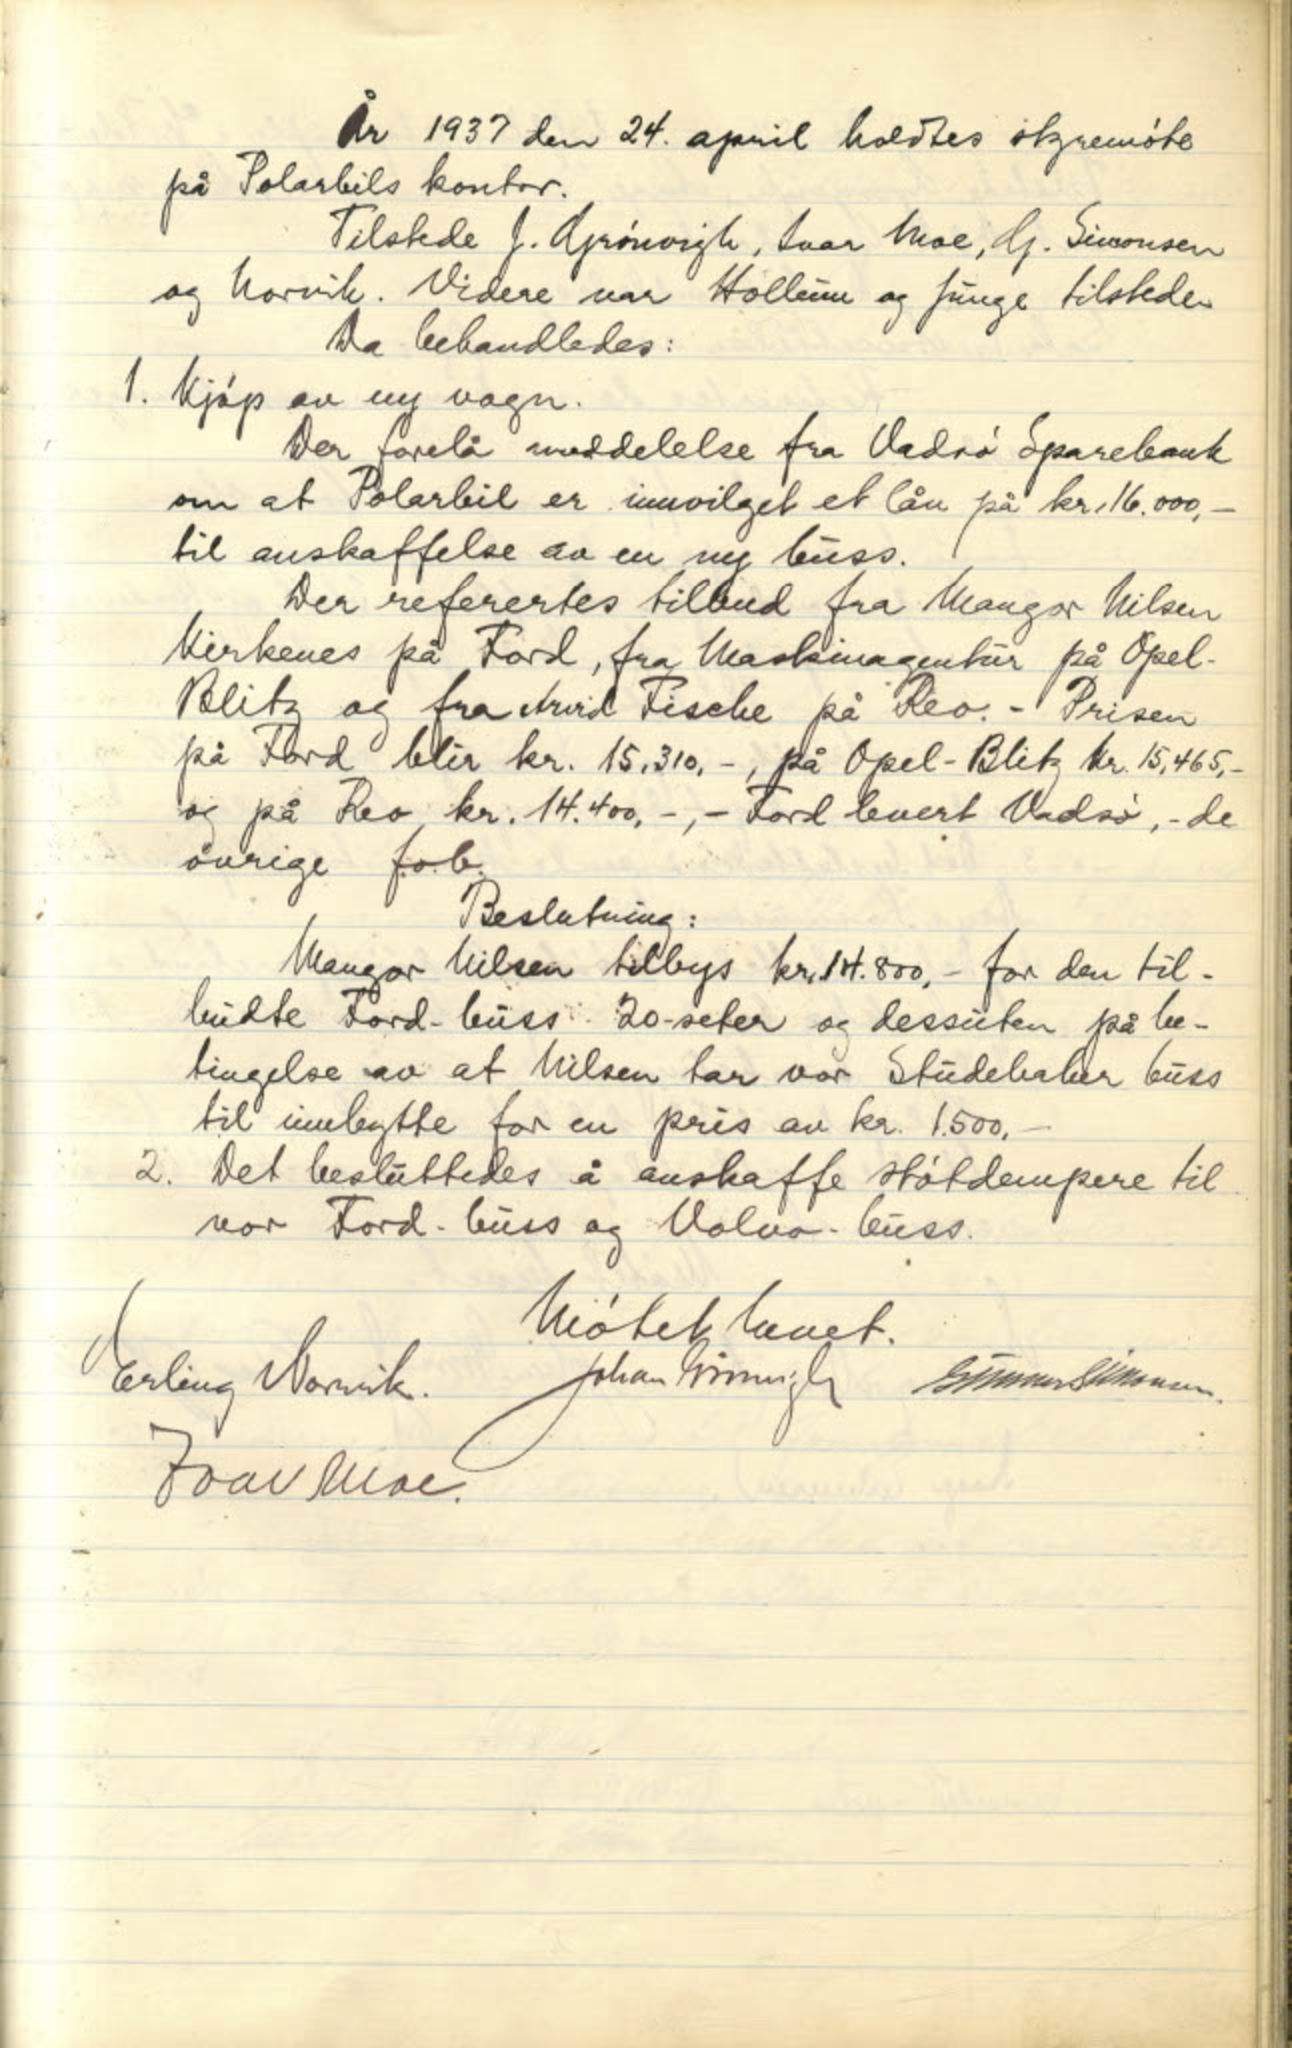 År 1937 den 24. april holdtes styremöte
på Polarbils kontor.
Tilstede J. Grönvigh, Ivar Moe, G. Simonsen
og Norvik. Videre var Hollum og Junge tilstede
Da behandledes:
1. Kjöp av ny vogn.
Der forelå meddelelse fra Vadsö Sparebank
om at Polarbil er innvilget et lån på kr. 16.000,-
til anskaffelse av en ny buss.
Der referertes tilbud fra Mangor Nilsen
Kirkenes på Ford, fra Maskinagentur på Opel-
Blitz og fra Arvid Fische på Reo. - Prisen
på Ford blir kr. 15.310,-, på Opel-Blitz kr. 15,465,-
og på Reo kr. 14.400,-,- Ford levert Vadsö, - de
övrige f.o.b.
Beslutning:
Mangor Nilsen tilbys kr. 14.800,- for den til-
budte Ford-buss 20-seter og dessuten på be-
tingelse av at Nilsen tar vor Studebaker buss
til innbytte for en pris av kr. 1.500,-
2. Det besluttedes å anskaffe stötdempere til
vor Ford-buss og Volvo-buss.
Mötet hevet.
Erling Norvik. Johan Grönvigh Gunnar Simonsen.
Ivar Moe.